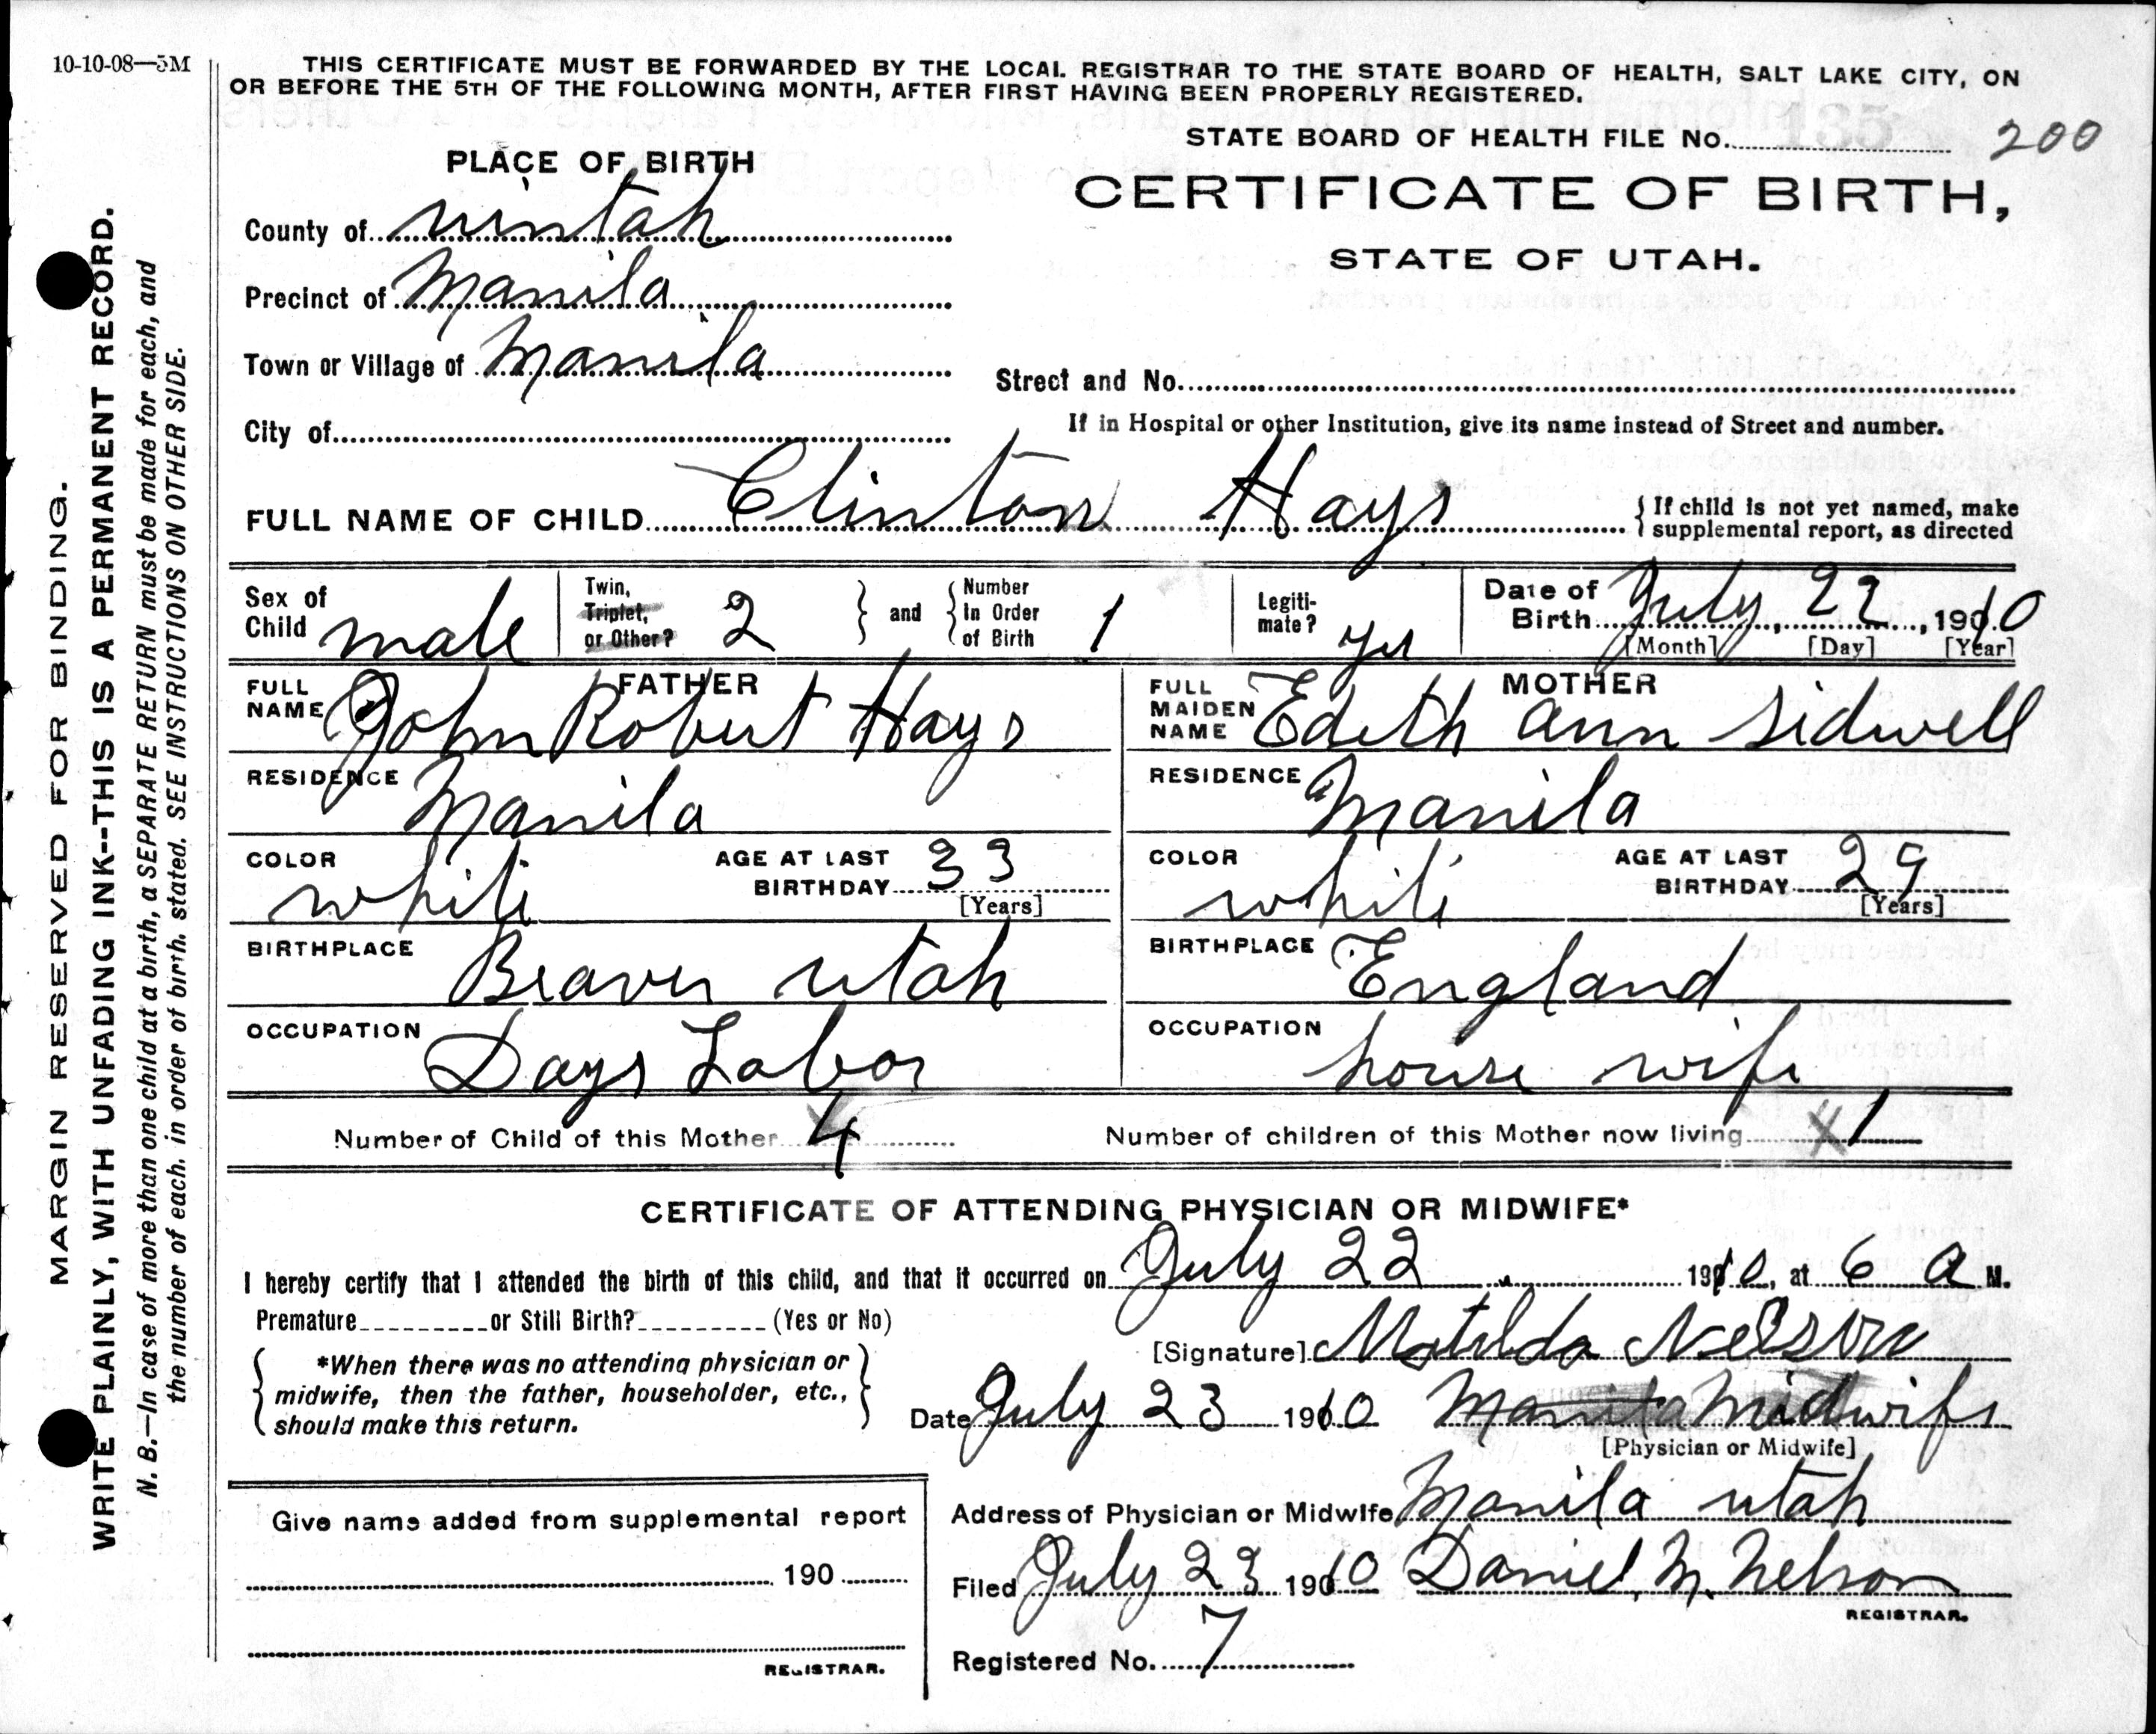 10-10-08—5M
THIS CERTIFICATE MUST BE FORWARDED BY THE LOCAL REGISTRAR TO THE STATE BOARD OF HEALTH, SALT LAKE CITY, ON
OR BEFORE THE 5TH OF THE FOLLOWING MONTH, AFTER FIRST HAVING BEEN PROPERLY REGISTERED.
STATE BOARD OF HEALTH FILE No. 135 200
PLACE OF BIRTH
CERTIFICATE OF BIRTH,
STATE OF UTAH.
County of uintah
Precinct of Manila
Town or Village of Manila
Street and No.
City of
If in Hospital or other Institution, give its name instead of Street and number.
FULL NAME OF CHILD Clinton Hays
{ If child is not yet named, make
supplemental report, as directed
Sex of
Child male
Twin,
Triplet,
or Other? 2
} and {
Number
In Order
of Birth 1
Legiti-
mate? yes
Date of
Birth July 22, 1910
[Month] [Day] [Year]
FATHER
FULL
NAME John Robert Hays
RESIDENCE Manila
COLOR white
AGE AT LAST
BIRTHDAY 33
[Years]
BIRTHPLACE Beaver utah
OCCUPATION Days Labor
MOTHER
FULL
MAIDEN
NAME Edeth ann Sidwell
RESIDENCE Manila
COLOR white
AGE AT LAST
BIRTHDAY 29
[Years]
BIRTHPLACE England
OCCUPATION house wife
Number of Child of this Mother 4
Number of children of this Mother now living 1
CERTIFICATE OF ATTENDING PHYSICIAN OR MIDWIFE*
I hereby certify that I attended the birth of this child, and that it occurred on July 22 1910, at 6 a M.
Premature or Still Birth? (Yes or No)
{ *When there was no attending physician or }
midwife, then the father, householder, etc.,
should make this return.
[Signature] Matilda Nelson
Date July 23 1910 Manila Midwife
[Physician or Midwife]
Address of Physician or Midwife Manila utah
Filed July 23 1910 Daniel M. Nelson
REGISTRAR.
Registered No. 7
Give name added from supplemental report
190
REGISTRAR.
MARGIN RESERVED FOR BINDING.
WRITE PLAINLY, WITH UNFADING INK--THIS IS A PERMANENT RECORD.
N. B.—In case of more than one child at a birth, a SEPARATE RETURN must be made for each, and
the number of each, in order of birth, stated. SEE INSTRUCTIONS ON OTHER SIDE.